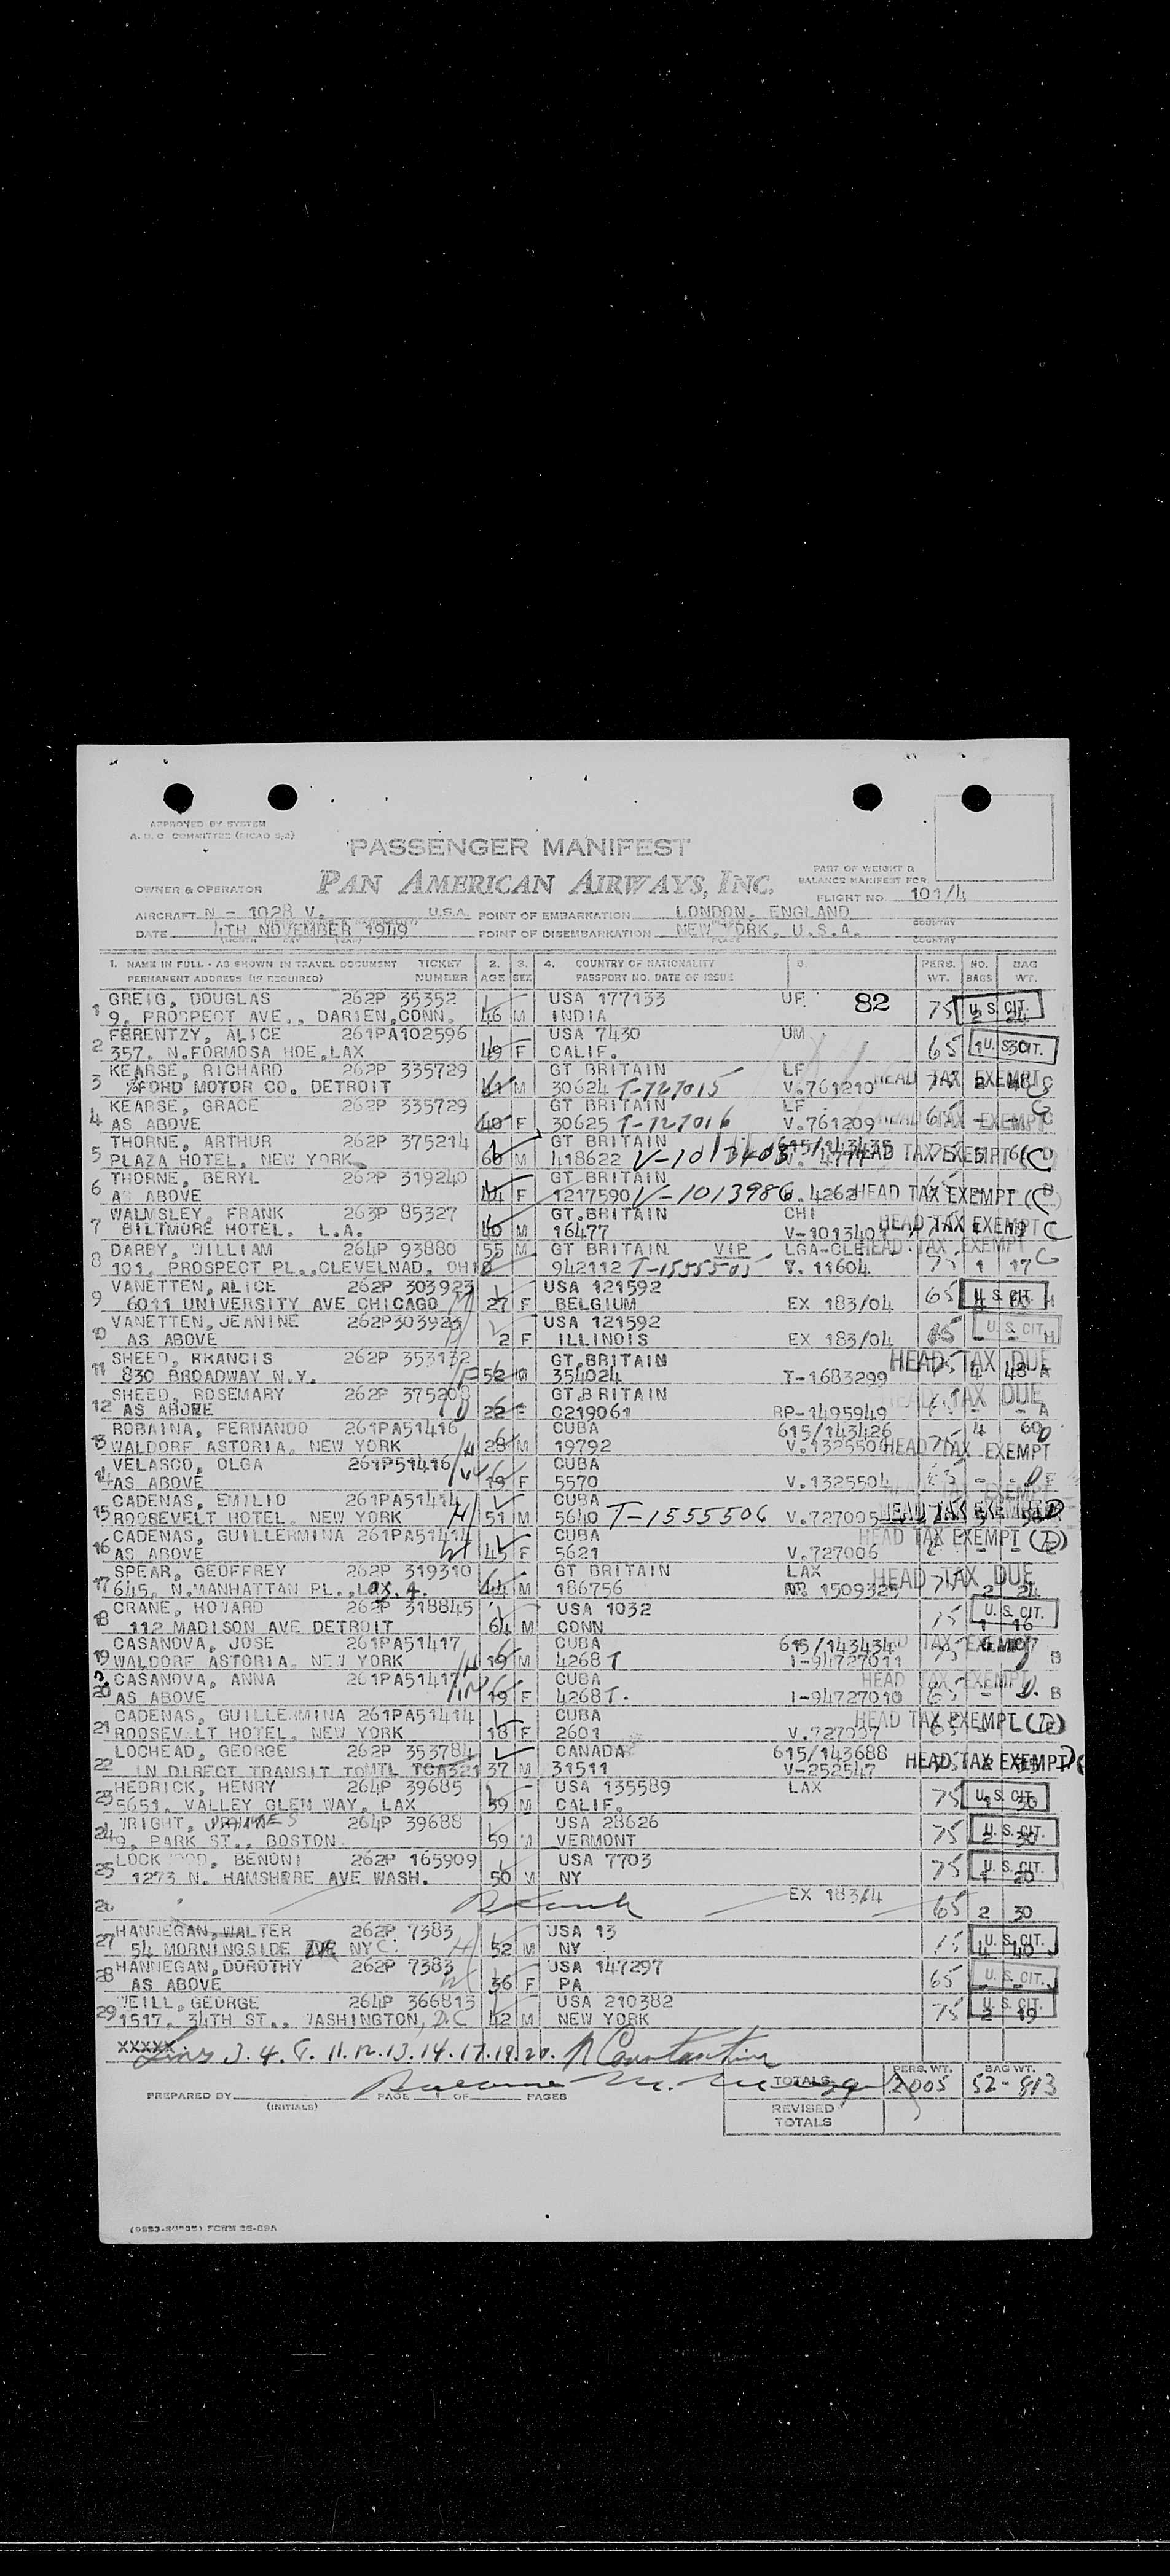 APPROVED BY SYSTEM
PASSENGER MANIFEST
PAN AMERICAN AIRWAYS, INC.
PART OF WEIGHT &
BALANCE MANIFEST FOR
OWNER & OPERATOR
FLIGHT NO. 101/4
AIRCRAFT N - 1028 V. U.S.A. POINT OF EMBARKATION LONDON, ENGLAND COUNTRY
DATE 4TH NOVEMBER 1949 POINT OF DISEMBARKATION NEW YORK, U.S.A. COUNTRY
1. NAME IN FULL - AS SHOWN IN TRAVEL DOCUMENT TICKET 2. 3. 4. COUNTRY OF NATIONALITY 5. PERS. NO. BAG
PERMANENT ADDRESS (IF REQUIRED) NUMBER AGE SEX PASSPORT NO. DATE OF ISSUE WT. BAGS WT.
1 GREIG, DOUGLAS 262P 35352 USA 177133 UF. 82 75 U.S. CIT.
9, PROSPECT AVE., DARIEN,CONN. 46 M INDIA
2 FERENTZY, ALICE 261PA102596 USA 7430 UM 65 U.S. CIT.
357, N.FORMOSA HOE,LAX 49 F CALIF.
3 KEARSE, RICHARD 262P 335729 GT BRITAIN LF
%FORD MOTOR CO. DETROIT 41 M 30624 T-727015 V.761210 HEAD TAX EXEMPT C
4 KEARSE, GRACE 262P 335729 GT BRITAIN LF 65
AS ABOVE 40 F 30625 T-727016 V.761209 HEAD TAX EXEMPT C
5 THORNE, ARTHUR 262P 375214 GT BRITAIN 615/143435
PLAZA HOTEL, NEW YORK. 60 M 418622 HEAD TAX EXEMPT (C
6 THORNE, BERYL 262P 319240 GT BRITAIN
AS ABOVE 44 F 1217590 V-1013986 .4262 HEAD TAX EXEMPT (C
7 WALMSLEY, FRANK 263P 85327 GT.BRITAIN CHI
BILTMORE HOTEL. L.A. 40 M 16477 V-1013401 HEAD TAX EXEMPT C
8 DARBY, WILLIAM 264P 93880 55 M GT BRITAIN VIP LGA-CLE HEAD TAX EXEMPT
191, PROSPECT PL.,CLEVELNAD, OHIO 942112 T-1555505 V. 11604 75 1 17 C
9 VANETTEN, ALICE 262P 303923 USA 121592 65 U.S. CIT.
6011 UNIVERSITY AVE CHICAGO 27 F BELGIUM EX 183/04 H
10 VANETTEN, JEANINE 262P303923 USA 121592 U.S. CIT.
AS ABOVE 2 F ILLINOIS EX 183/04 H
11 SHEED, FRANCIS 262P 353132 GT.BRITAIN HEAD TAX DUE
830 BROADWAY N.Y. 52 M 354024 T-1683299 4 43 A
12 SHEED, ROSEMARY 262P 375208 GT.BRITAIN HEAD TAX DUE
AS ABOVE 22 F C219061 RP-1495949 - - A
13 ROBAINA, FERNANDO 261PA51416 CUBA 615/143426 4 60
WALDORF ASTORIA, NEW YORK 28 M 19792 V.1325506 HEAD TAX EXEMPT
14 VELASCO, OLGA 261P51416 CUBA
AS ABOVE 19 F 5570 V.1325504 - -
15 CADENAS, EMILIO 261PA51414 CUBA
ROOSEVELT HOTEL, NEW YORK 51 M 5640 T-1555506 V.727005 HEAD TAX EXEMPT
16 CADENAS, GUILLERMINA 261PA51414 CUBA HEAD TAX EXEMPT (D)
AS ABOVE 45 F 5621 V.727006
17 SPEAR, GEOFFREY 262P 319310 GT BRITAIN LAX HEAD TAX DUE
645, N.MANHATTAN PL.,Lax.4. 44 M 186756 1509325 2 24
18 CRANE, HOWARD 262P 318845 USA 1032 75 U.S. CIT.
112 MADISON AVE DETROIT 64 M CONN 1 16
19 CASANOVA, JOSE 261PA51417 CUBA 615/143434 TAX EXEMPT
WALDORF ASTORIA, NEW YORK 19 M 4268T I-94727011 B
20 CASANOVA, ANNA 261PA51417 CUBA HEAD TAX EXEMPT
AS ABOVE 19 F 4268T. I-94727010 B
21 CADENAS, GUILLERMINA 261PA51414 CUBA HEAD TAX EXEMPT (D)
ROOSEVELT HOTEL, NEW YORK 18 F 2601 V.727007
22 LOCHEAD, GEORGE 262P 353784 CANADA 615/143688 HEAD TAX EXEMPT
IN DIRECT TRANSIT TO MTL TCA321 37 M 31511 V-252547
23 HEDRICK, HENRY 264P 39685 USA 135589 LAX 75 U.S. CIT.
5651, VALLEY GLEN WAY, LAX 39 M CALIF.
24 WRIGHT, JAMES 264P 39688 USA 28626 75 U.S. CIT.
9, PARK ST., BOSTON 59 M VERMONT 2 30
25 LOCKWOOD, BENONI 262P 165909 USA 7703 75 U.S. CIT.
1273 N. HAMSHIRE AVE WASH. 50 M NY 1 20
26 Blank EX 183/4 65 2 30
27 HANNEGAN, WALTER 262P 7383 USA 13 75 U.S. CIT.
54 MORNINGSIDE AVE NYC 52 M NY 4 40 J
28 HANNEGAN, DOROTHY 262P 7383 USA 147297 65 U.S. CIT.
AS ABOVE 36 F PA - - J
29 WEILL, GEORGE 264P 366813 USA 210382 75 U.S. CIT.
1517, 34TH ST., WASHINGTON, D.C 42 M NEW YORK 2 19
XXXXX Lins 3. 4. 8. 11. 12. 13. 14. 17. 19. 20. N Constantine
TOTALS PERS. WT. 2005 BAG WT. 52-813
PREPARED BY PAGE 1 OF PAGES
(INITIALS)
REVISED
TOTALS